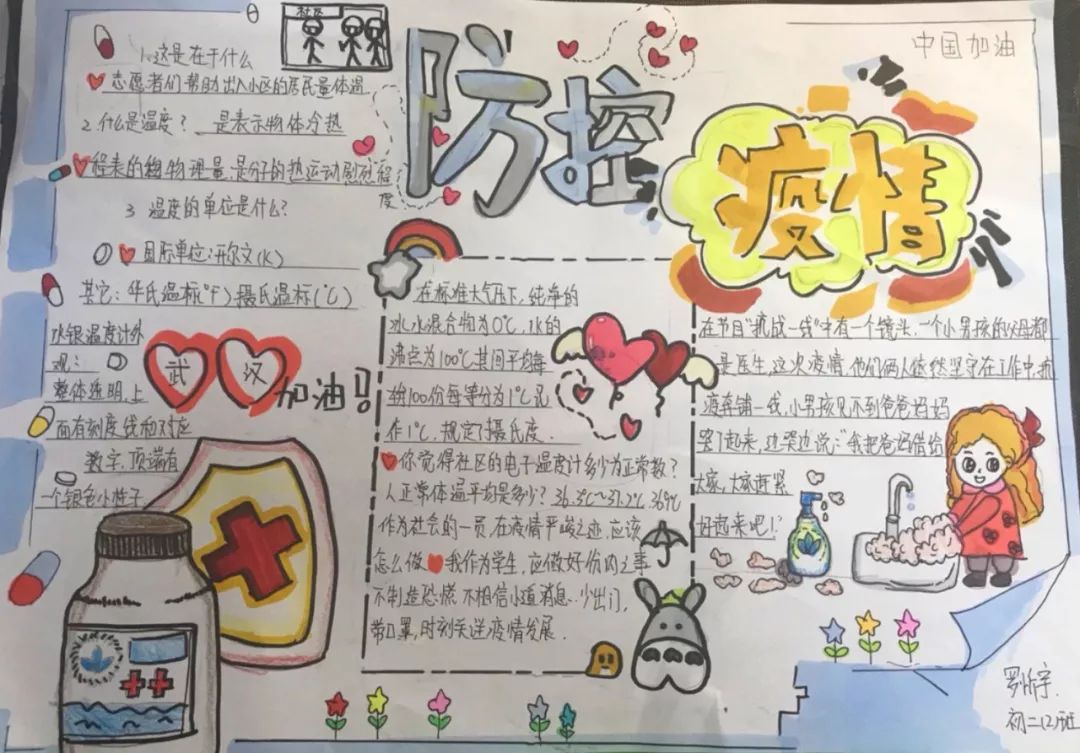 社区
防控
疫情
中国加油
1.这是在干什么
志愿者们帮助出入小区的居民量体温
2.什么是温度? 是表示物体冷热
程表的物理量,是分子的热运动剧烈程
度
3 温度的单位是什么?
国际单位:开尔文(K)
其它:华氏温标(°F)摄氏温标(℃)
水银温度计外
观:
整体透明,上
面有刻度线和对应
数字,顶端有
一个银色小柱子
武汉
加油!
在标准大气压下,纯净的
冰水混合物为0℃,水的
沸点为100℃其间平均每
给100份每等分为1℃记
作1℃,规定了摄氏度.
你觉得社区的电子温度计多少为正常数?
人正常体温平均是多少? 36.3℃~37.2℃
作为社会的一员,在疫情严峻之迹,应该
怎么做 我作为学生,应做好份内之事
不制造恐慌 不相信小道消息..少出门,
带口罩,时刻关送疫情发展.
在节目"抗战一线"中有一个镜头,一个小男孩的父母都
是医生,这次疫情,他们俩人依然坚守在工作中抗
疫奔铺一线,小男孩见不到爸爸妈妈
哭了起来,边哭边说:"我把爸妈借给
大家,大家赶紧
好起来吧!"
初二(2)班